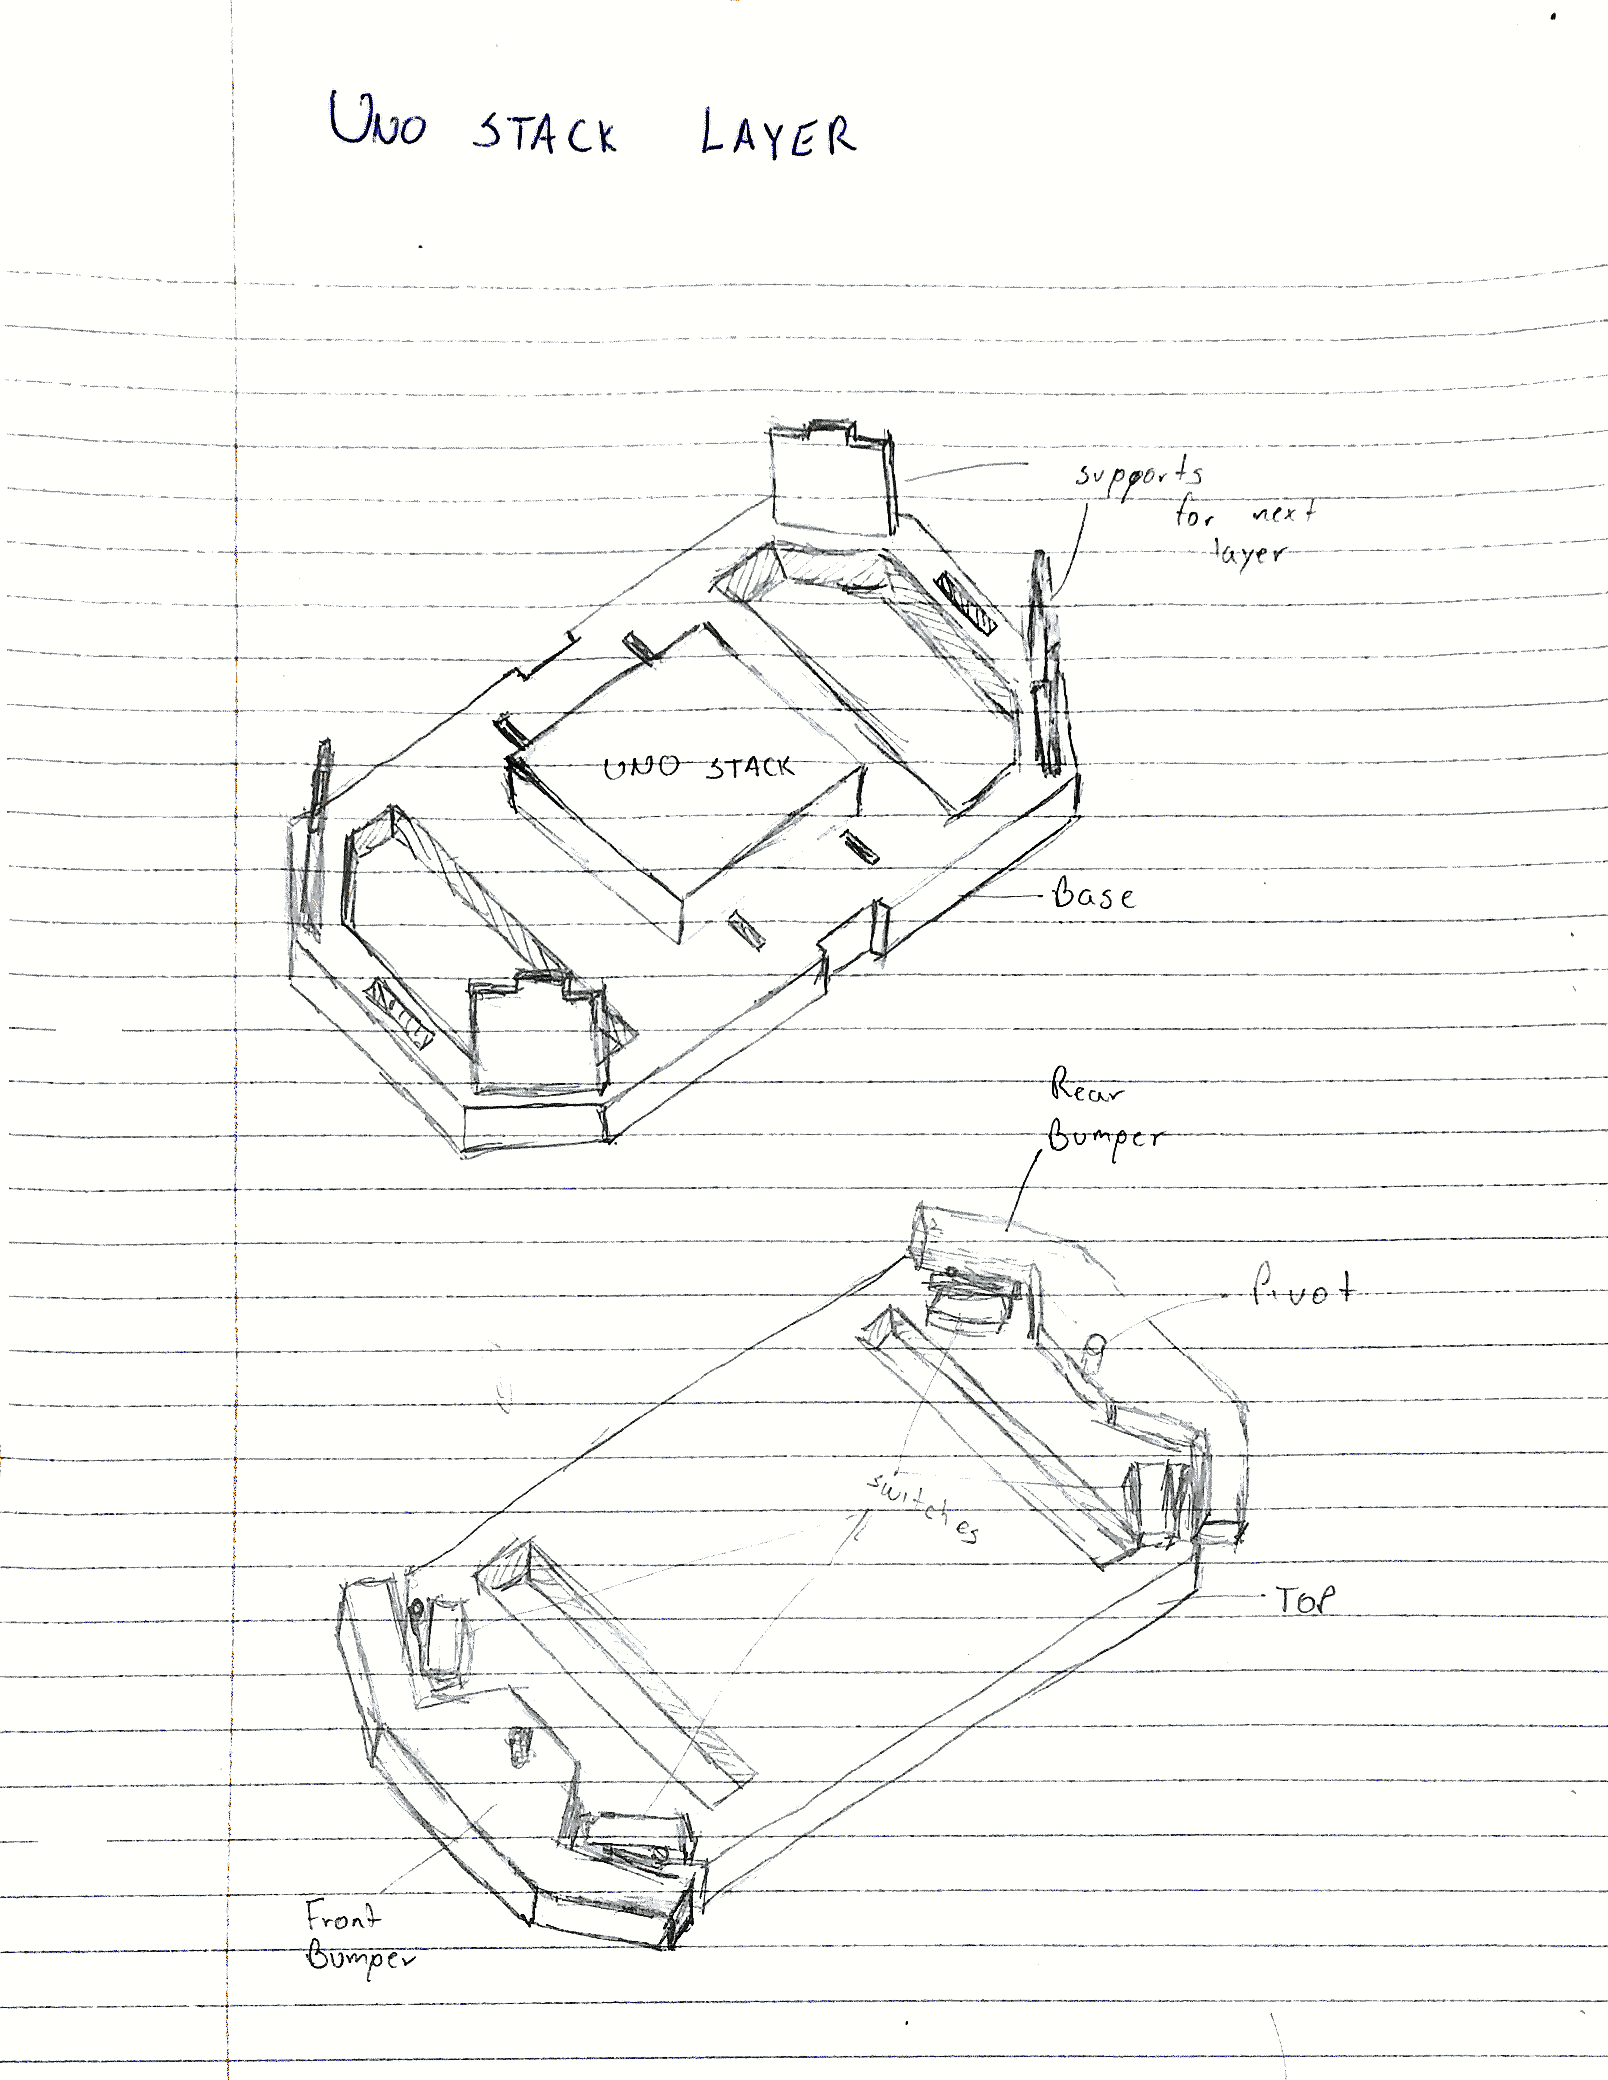 UNO STACK LAYER
supports
for next
layer
UNO STACK
Base
Rear
Bumper
Pivot
switches
TOP
Front
Bumper